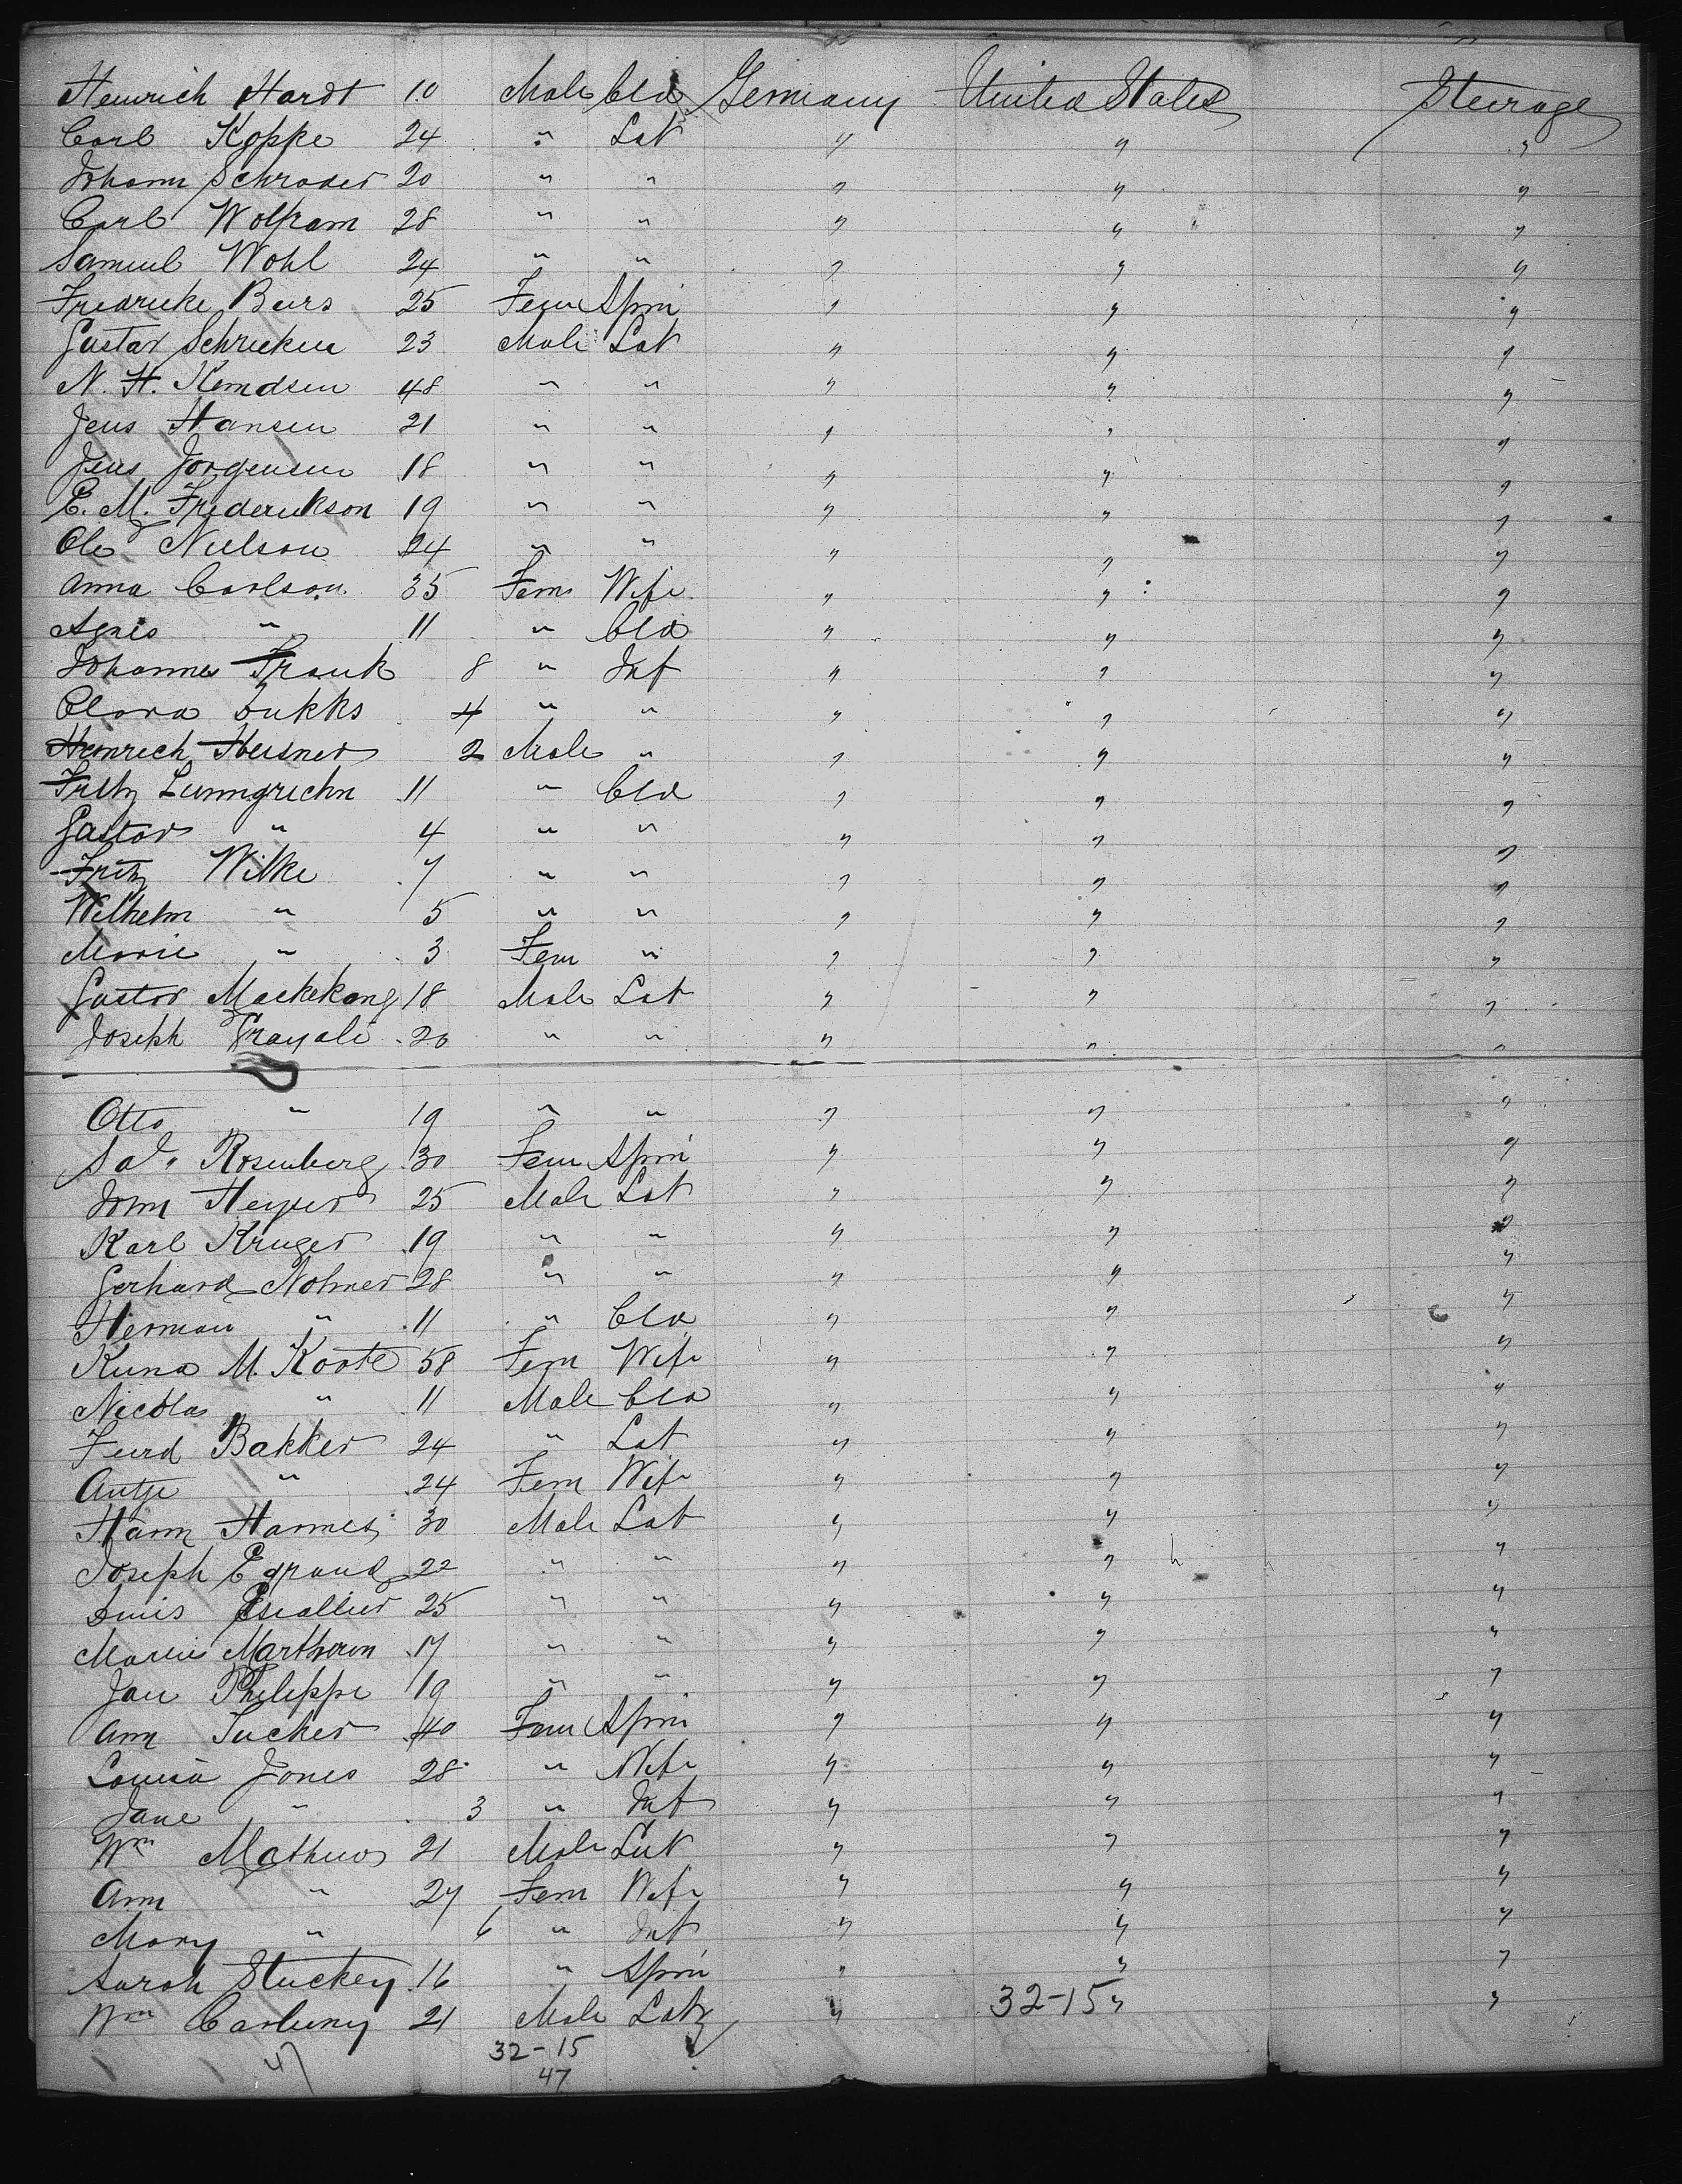 Heinrich Hardt 10 Male Cld Germany United States Steerage
Carl Koppe 24 " Lab " " "
Johann Schroder 20 " " " " "
Carl Wolfram 28 " " " " "
Samuel Wohl 24 " " " " "
Fredricke Beers 25 Fem Spin " " "
Gustav Schrieken 23 Male Lab " " "
N. H. Kemdsen 48 " " " " "
Jens Hansen 21 " " " " "
Jens Jorgensen 18 " " " " "
E. M. Frederickson 19 " " " " "
Ole Nielson 24 " " " " "
Anna Carlson 35 Fem Wife " " "
Agnes " 11 " Cld " " "
Johannes Frank 8 " Inf " " "
Clara Dukks 4 " " " " "
Heinrich Heisner 2 Male " " " "
Fritz Lunngrichn 11 " Cld " " "
Gastav " 4 " " " " "
Fritz Wilke 7 " " " " "
Wilhelm " 5 " " " " "
Marie " 3 Fem " " " "
Gustav Mackekang 18 Male Lab " " "
Joseph Grayali 20 " " " " "
Otto " 19 " " " " "
Rosenberg 30 Fem Spin " " "
John Heyer 25 Male Lab " " "
Karl Kruger 19 " " " " "
Gerhard Nohmer 28 " " " " "
Herman " 11 " Cld " " "
Kuna M. Koote 58 Fem Wife " " "
Nicolas " 11 Male Cld " " "
Feurd Bakker 24 " Lab " " "
Antje " 24 Fem Wife " " "
Harm Harmes 30 Male Lab " " "
Joseph Egraud 22 " " " " "
Louis Escallier 25 " " " " "
Marius Marthoron 17 " " " " "
Jan Philippe 19 " " " " "
Ann Tucker 40 Fem Spin " " "
Louisa Jones 28 " Wife " " "
Jane " 3 " Inf " " "
Wm Mathews 21 Male Lab " " "
Ann " 27 Fem Wife " " "
Mary " 6 " Inf " " "
Sarah Stuckey 16 " Spin " " "
Wm Carluny 21 Male Lab " 32-15 " "
47 32-15
47